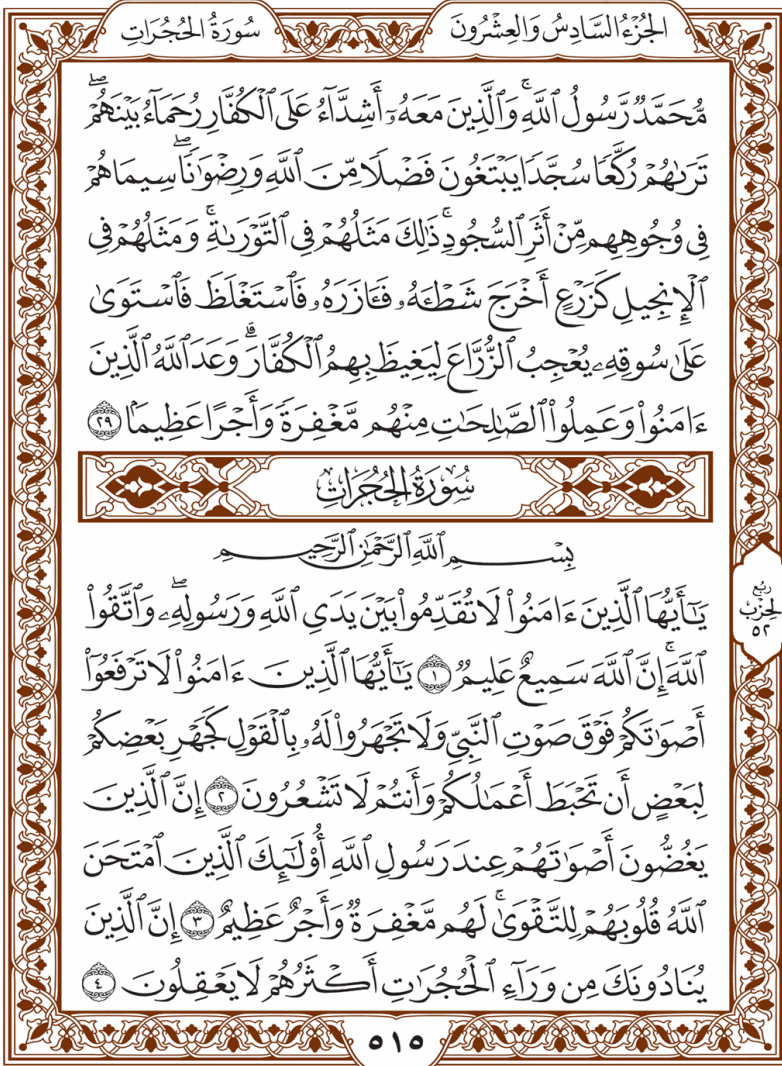 الجُزْءُ السَّادِسُ وَالعِشْرُونَ
سُورَةُ الحُجُرَاتِ
مُّحَمَّدٌ رَّسُولُ ٱللَّهِۚ وَٱلَّذِينَ مَعَهُۥٓ أَشِدَّآءُ عَلَى ٱلۡكُفَّارِ رُحَمَآءُ بَيۡنَهُمۡۖ
تَرَىٰهُمۡ رُكَّعٗا سُجَّدٗا يَبۡتَغُونَ فَضۡلٗا مِّنَ ٱللَّهِ وَرِضۡوَٰنٗاۖ سِيمَاهُمۡ
فِي وُجُوهِهِم مِّنۡ أَثَرِ ٱلسُّجُودِۚ ذَٰلِكَ مَثَلُهُمۡ فِي ٱلتَّوۡرَىٰةِۚ وَمَثَلُهُمۡ فِي
ٱلۡإِنجِيلِ كَزَرۡعٍ أَخۡرَجَ شَطۡـَٔهُۥ فَـَٔازَرَهُۥ فَٱسۡتَغۡلَظَ فَٱسۡتَوَىٰ
عَلَىٰ سُوقِهِۦ يُعۡجِبُ ٱلزُّرَّاعَ لِيَغِيظَ بِهِمُ ٱلۡكُفَّارَۗ وَعَدَ ٱللَّهُ ٱلَّذِينَ
ءَامَنُواْ وَعَمِلُواْ ٱلصَّٰلِحَٰتِ مِنۡهُم مَّغۡفِرَةٗ وَأَجۡرًا عَظِيمَۢا ٢٩
سُورَةُ الحُجُرَاتِ
بِسۡمِ ٱللَّهِ ٱلرَّحۡمَٰنِ ٱلرَّحِيمِ
يَٰٓأَيُّهَا ٱلَّذِينَ ءَامَنُواْ لَا تُقَدِّمُواْ بَيۡنَ يَدَيِ ٱللَّهِ وَرَسُولِهِۦۖ وَٱتَّقُواْ
ٱللَّهَۚ إِنَّ ٱللَّهَ سَمِيعٌ عَلِيمٞ ١ يَٰٓأَيُّهَا ٱلَّذِينَ ءَامَنُواْ لَا تَرۡفَعُوٓاْ
أَصۡوَٰتَكُمۡ فَوۡقَ صَوۡتِ ٱلنَّبِيِّ وَلَا تَجۡهَرُواْ لَهُۥ بِٱلۡقَوۡلِ كَجَهۡرِ بَعۡضِكُمۡ
لِبَعۡضٍ أَن تَحۡبَطَ أَعۡمَٰلُكُمۡ وَأَنتُمۡ لَا تَشۡعُرُونَ ٢ إِنَّ ٱلَّذِينَ
يَغُضُّونَ أَصۡوَٰتَهُمۡ عِندَ رَسُولِ ٱللَّهِ أُوْلَٰٓئِكَ ٱلَّذِينَ ٱمۡتَحَنَ
ٱللَّهُ قُلُوبَهُمۡ لِلتَّقۡوَىٰۚ لَهُم مَّغۡفِرَةٞ وَأَجۡرٌ عَظِيمٌ ٣ إِنَّ ٱلَّذِينَ
يُنَادُونَكَ مِن وَرَآءِ ٱلۡحُجُرَٰتِ أَكۡثَرُهُمۡ لَا يَعۡقِلُونَ ٤
رُبْع
الحِزْب
٥٢
٥١٥